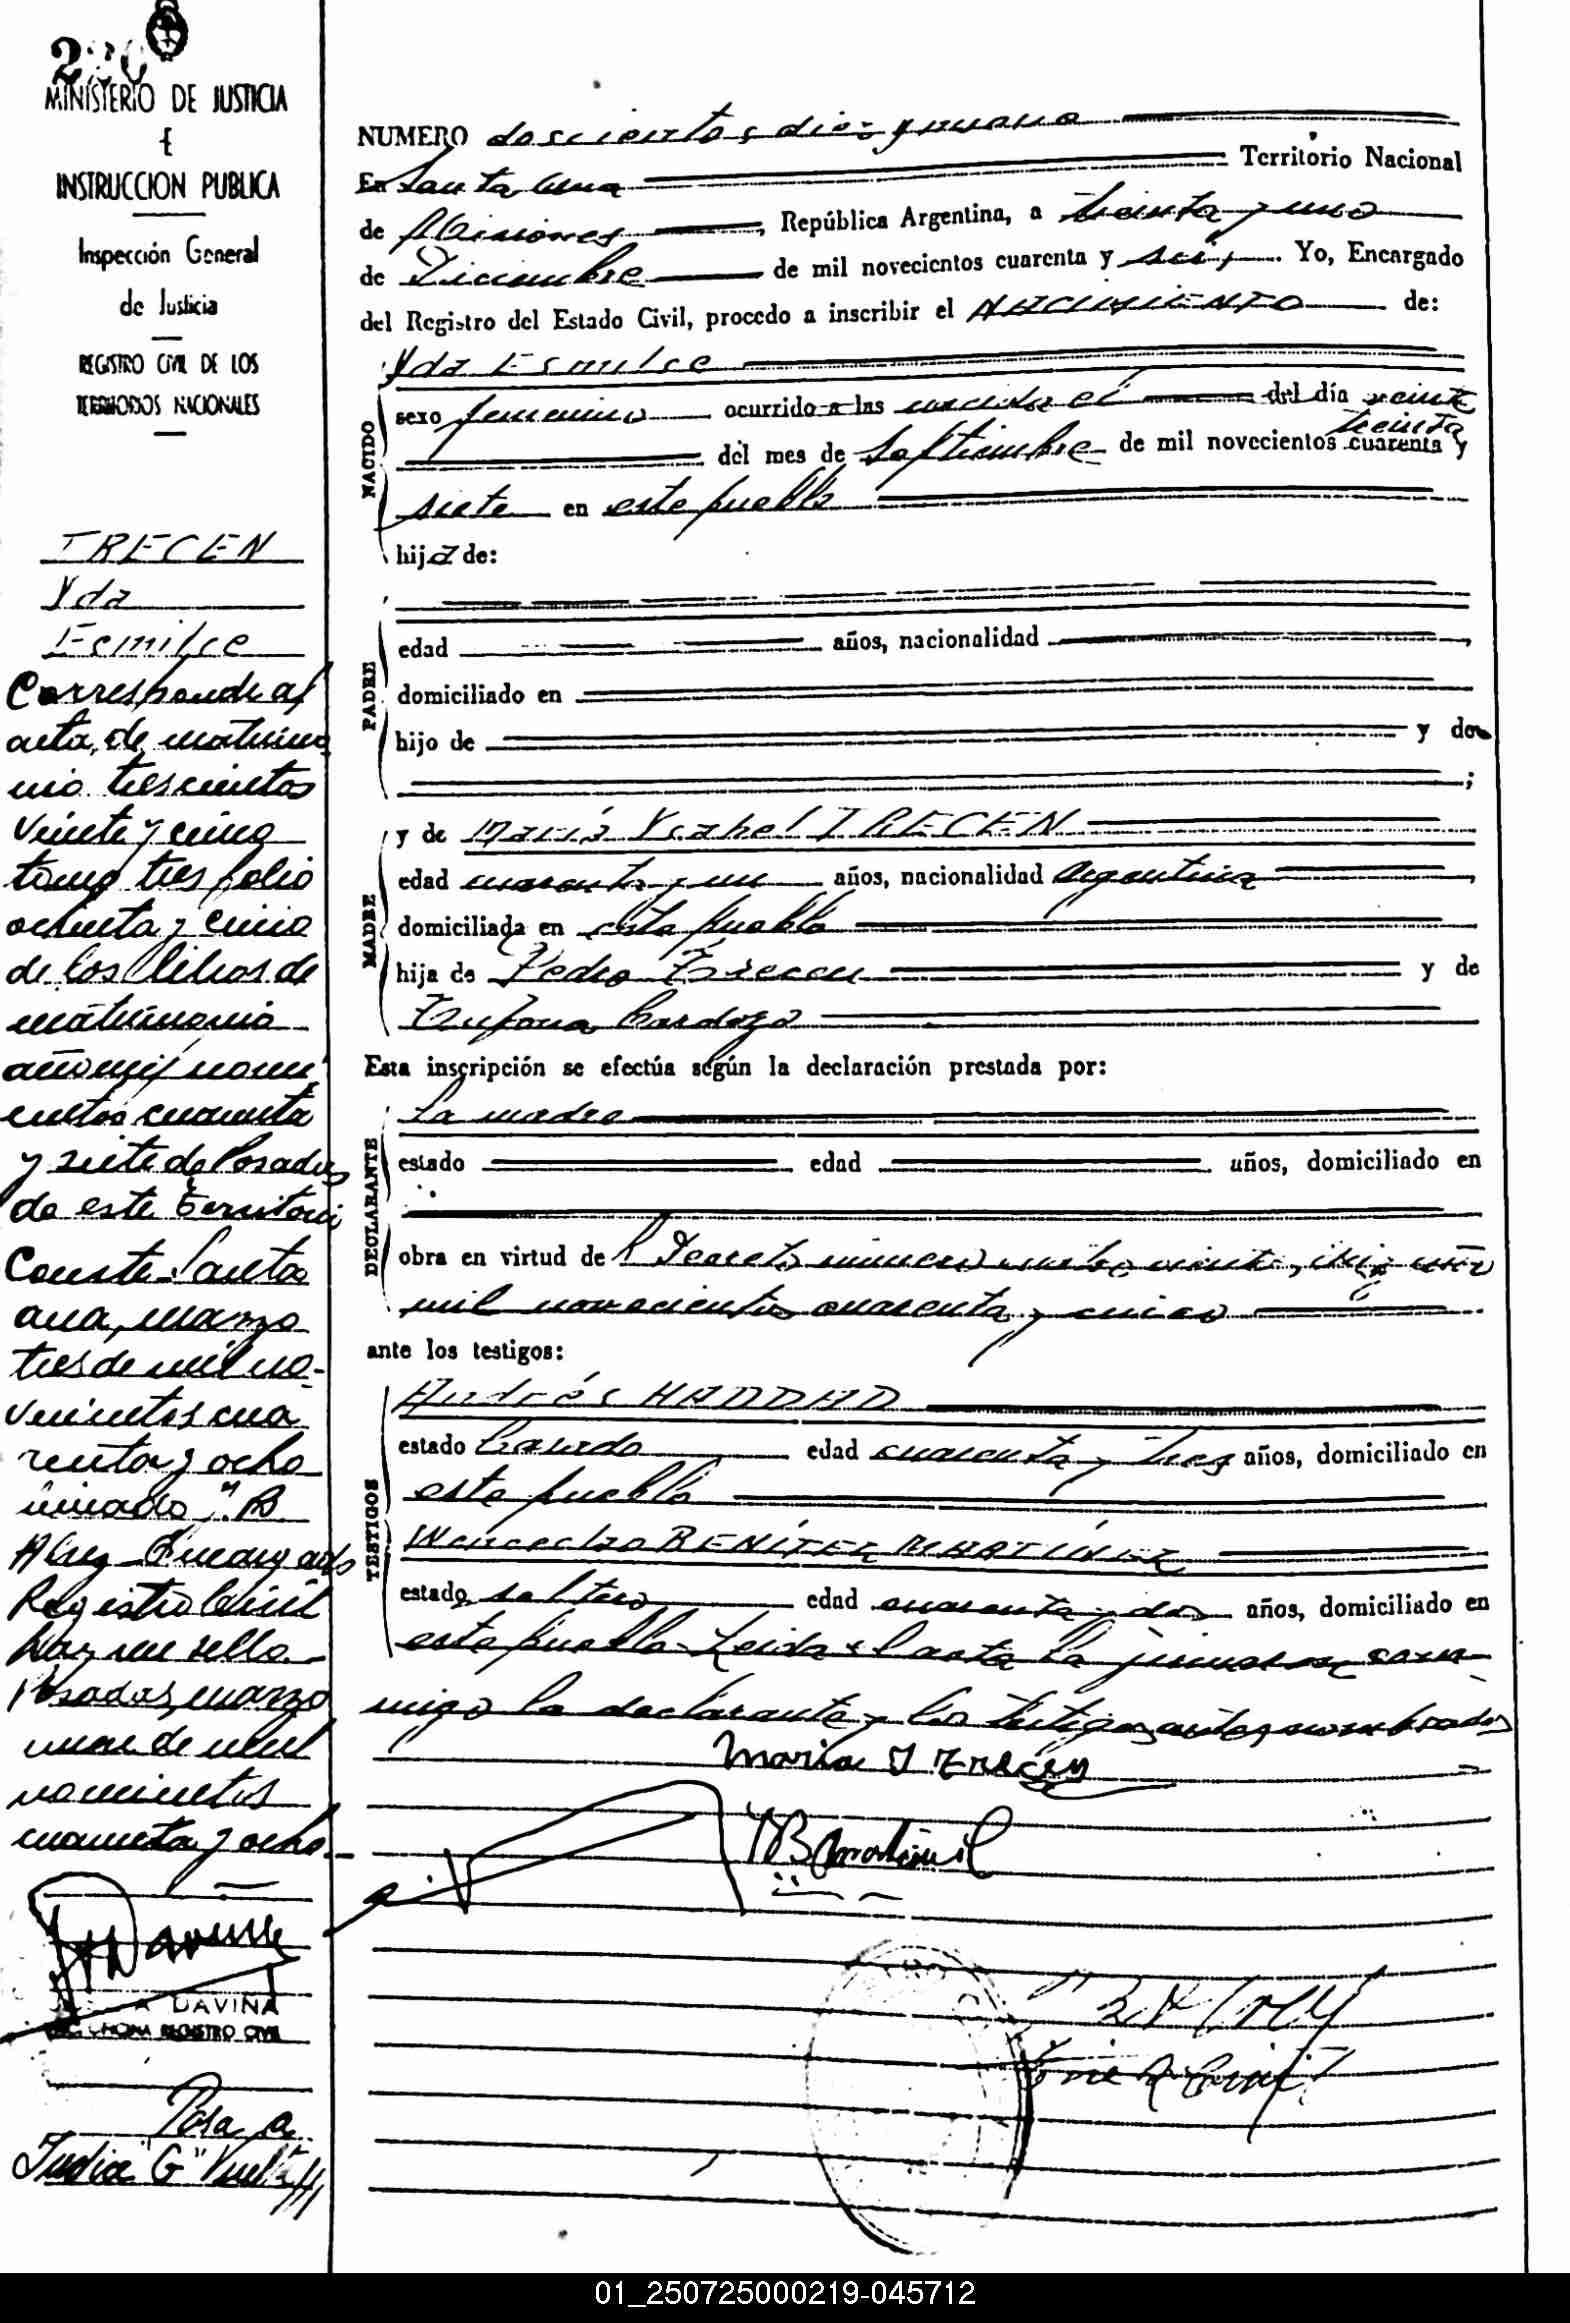 MINISTERIO DE JUSTICIA
E
INSTRUCCION PUBLICA
Inspección General
de Justicia
REGISTRO CIVIL DE LOS
TERRITORIOS NACIONALES
TRECEN
Yda
Esmilce
Corresponde al
acta, de matrimo
nio trescientos
veinte y cinco
tomo tres folio
ochenta y cinco
de los libros de
matrimonio
año mil nove
cientos cuarenta
y siete de Posadas
de este territorio
Conste. Santa
ana, marzo
tres de mil no-
vecientos cua
renta y ocho
B.
Encargado
Registro Civil
hay un sello.
Posadas, marzo
de mil
novecientos
cuarenta y ocho.
DAVIÑA
REGISTRO CIVIL
Pasa a
Indice "G" Vuelta
NUMERO doscientos diez y nueve
En Santa Ana Territorio Nacional
de Misiones, República Argentina, a treinta y uno
de Diciembre de mil novecientos cuarenta y seis. Yo, Encargado
del Registro del Estado Civil, procedo a inscribir el NACIMIENTO de:
Yda Esmilce
NACIDO
sexo femenino ocurrido a las nacida el del día veinte
treinta
del mes de Septiembre de mil novecientos cuarenta y
siete en este pueblo
hija de:
PADRE
edad años, nacionalidad
domiciliado en
hijo de y de
;
MADRE
y de María Ysabel TRECEN
edad cuarenta y un años, nacionalidad Argentina
domiciliada en este pueblo
hija de Pedro Trecen y de
Trifona Cardozo
Esta inscripción se efectúa según la declaración prestada por:
DECLARANTE
La madre
estado edad años, domiciliado en
obra en virtud de Decreto número veinte, año
mil novecientos cuarenta y cinco
ante los testigos:
TESTIGOS
Andrés HADDAD
estado Casado edad cuarenta y tres años, domiciliado en
este pueblo
Wenceslao BENÍTEZ MARTÍNEZ
estado soltero edad cuarenta y dos años, domiciliado en
este pueblo. Leída el acta la firmaron con-
migo la declarante y los testigos antes nombrados
Maria Y Trecen
01_250725000219-045712